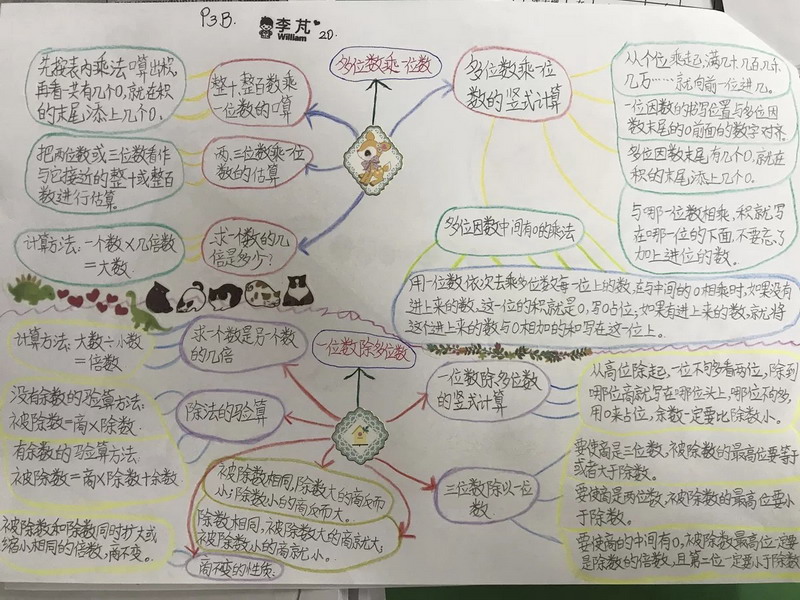 P3B.
李芃
William
2D.
多位数乘一位数
先按表内乘法口算出积,
再看一共有几个0,就在积
的末尾添上几个0.
整十、整百数乘
一位数的口算
把两位数或三位数看作
与它接近的整十或整百
数进行估算.
两、三位数乘一位
数的估算
计算方法:一个数×几倍数
=大数.
求一个数的几
倍是多少?
多位数乘一位
数的竖式计算
从个位乘起,满几十几百几千
几万……就向前一位进几。
一位因数的书写位置与多位因
数末尾的0前面的数字对齐.
多位因数末尾有几个0,就在
积的末尾添上几个0.
与哪一位数相乘,积就写
在哪一位的下面,不要忘了
加上进位的数。
多位因数中间有0的乘法
用一位数依次去乘多位数每一位上的数,在与中间的0相乘时,如果没有
进上来的数,这一位的积就是0,写0占位;如果有进上来的数,就将
这个进上来的数与0相加的和写在这一位上。
一位数除多位数
计算方法:大数÷小数
=倍数
求一个数是另一个数
的几倍
没有余数的验算方法:
被除数=商×除数.
有余数的验算方法:
被除数=商×除数+余数
除法的验算
被除数和除数同时扩大或
缩小相同的倍数,商不变。
商不变的性质:
被除数相同,除数大的商反而
小;除数小的商反而大。
除数相同,被除数大的商就大,
被除数小的商就小。
一位数除多位数
的竖式计算
从高位除起,一位不够看两位,除到
哪位商就写在哪位头上,哪位不够,
用0来占位,余数一定要比除数小。
三位数除以一位
数.
要使商是三位数,被除数的最高位要等于
或者大于除数。
要使商是两位数,被除数的最高位要小
于除数。
要使商的中间有0,被除数最高位一定要
是除数的倍数,且第二位一定要小于除数